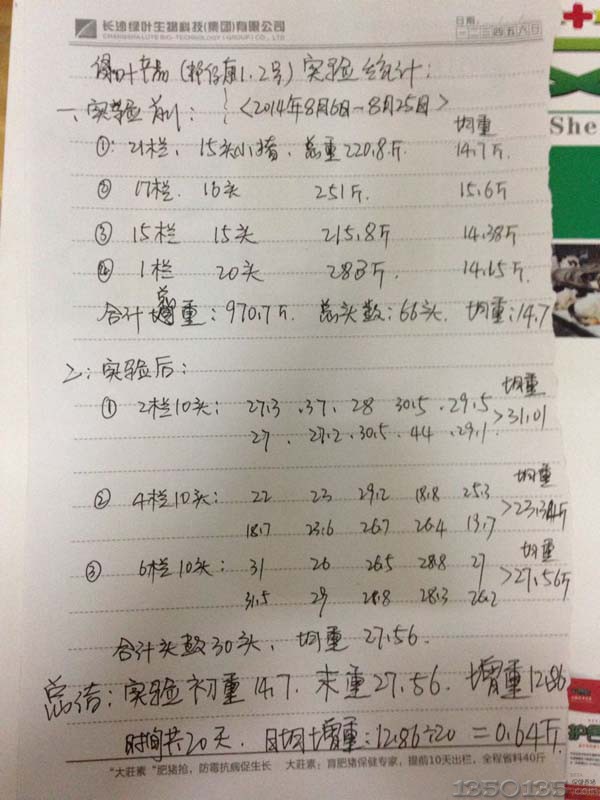 长沙绿叶生物科技(集团)有限公司
CHANGSHA LVYE BIO-TECHNOLOGY (GROUP) CO., LTD.
日期:
一二三四五六日
实验统计:
一、实验前: <2014年8月6日-8月25日>
均重
①: 21栏、15头小猪、总重220.8斤. 14.7斤.
② 17栏. 16头 251斤. 15.6斤
③ 15栏 15头 215.8斤 14.38斤
④ 1栏 20头 283斤. 14.15斤.
合计总重: 970.7斤. 总头数: 66头. 均重: 14.7
二: 实验后:
均重
① 2栏10头: 27.3 .37. 28 30.5 .29.5 >31.01
27 . 27.2 .30.5. 44 .29.1
均重
② 4栏10头: 22 23 29.2 18.8 25.3 >23.34斤
18.7 23.6 26.7 26.4 19.7
均重
③ 6栏10头: 31 26 26.5 28.8 27 >27.56斤
31.5 29 28.8 28.3 26.2
合计头数30头, 均重 27.56.
总结: 实验初重14.7. 末重27.56. 增重12.86
时间共20天. 日均增重: 12.86÷20 = 0.64斤.
“大莊素”肥猪抢,防霉抗病促生长 大莊素:育肥猪保健专家,提前10天出栏,全程省料40斤
She
1350135.com